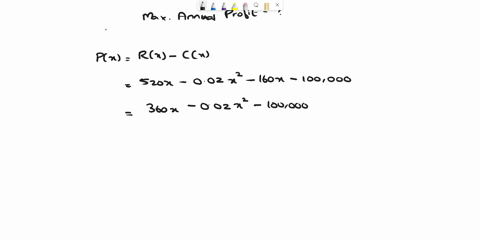 Max. Annual Profit - ?
P(x) = R(x) - C(x)
= 520x - 0.02x² - 160x - 100,000
= 360x - 0.02x² - 100,000